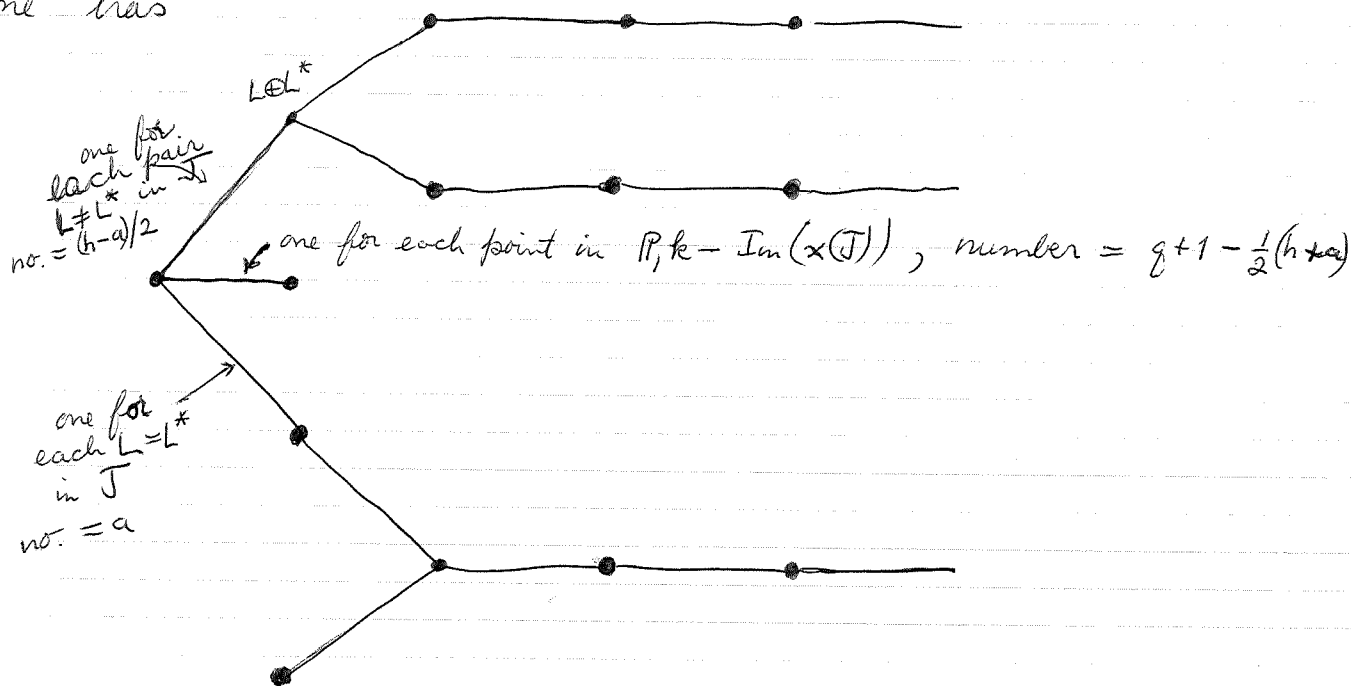 one has
L⊕L*
one for
each pair
L≠L* in J
no. = (h-a)/2
one for each point in P₁k - Im(x(J)), number = q+1-½(h+a)
one for
each L=L*
in J
no. = a